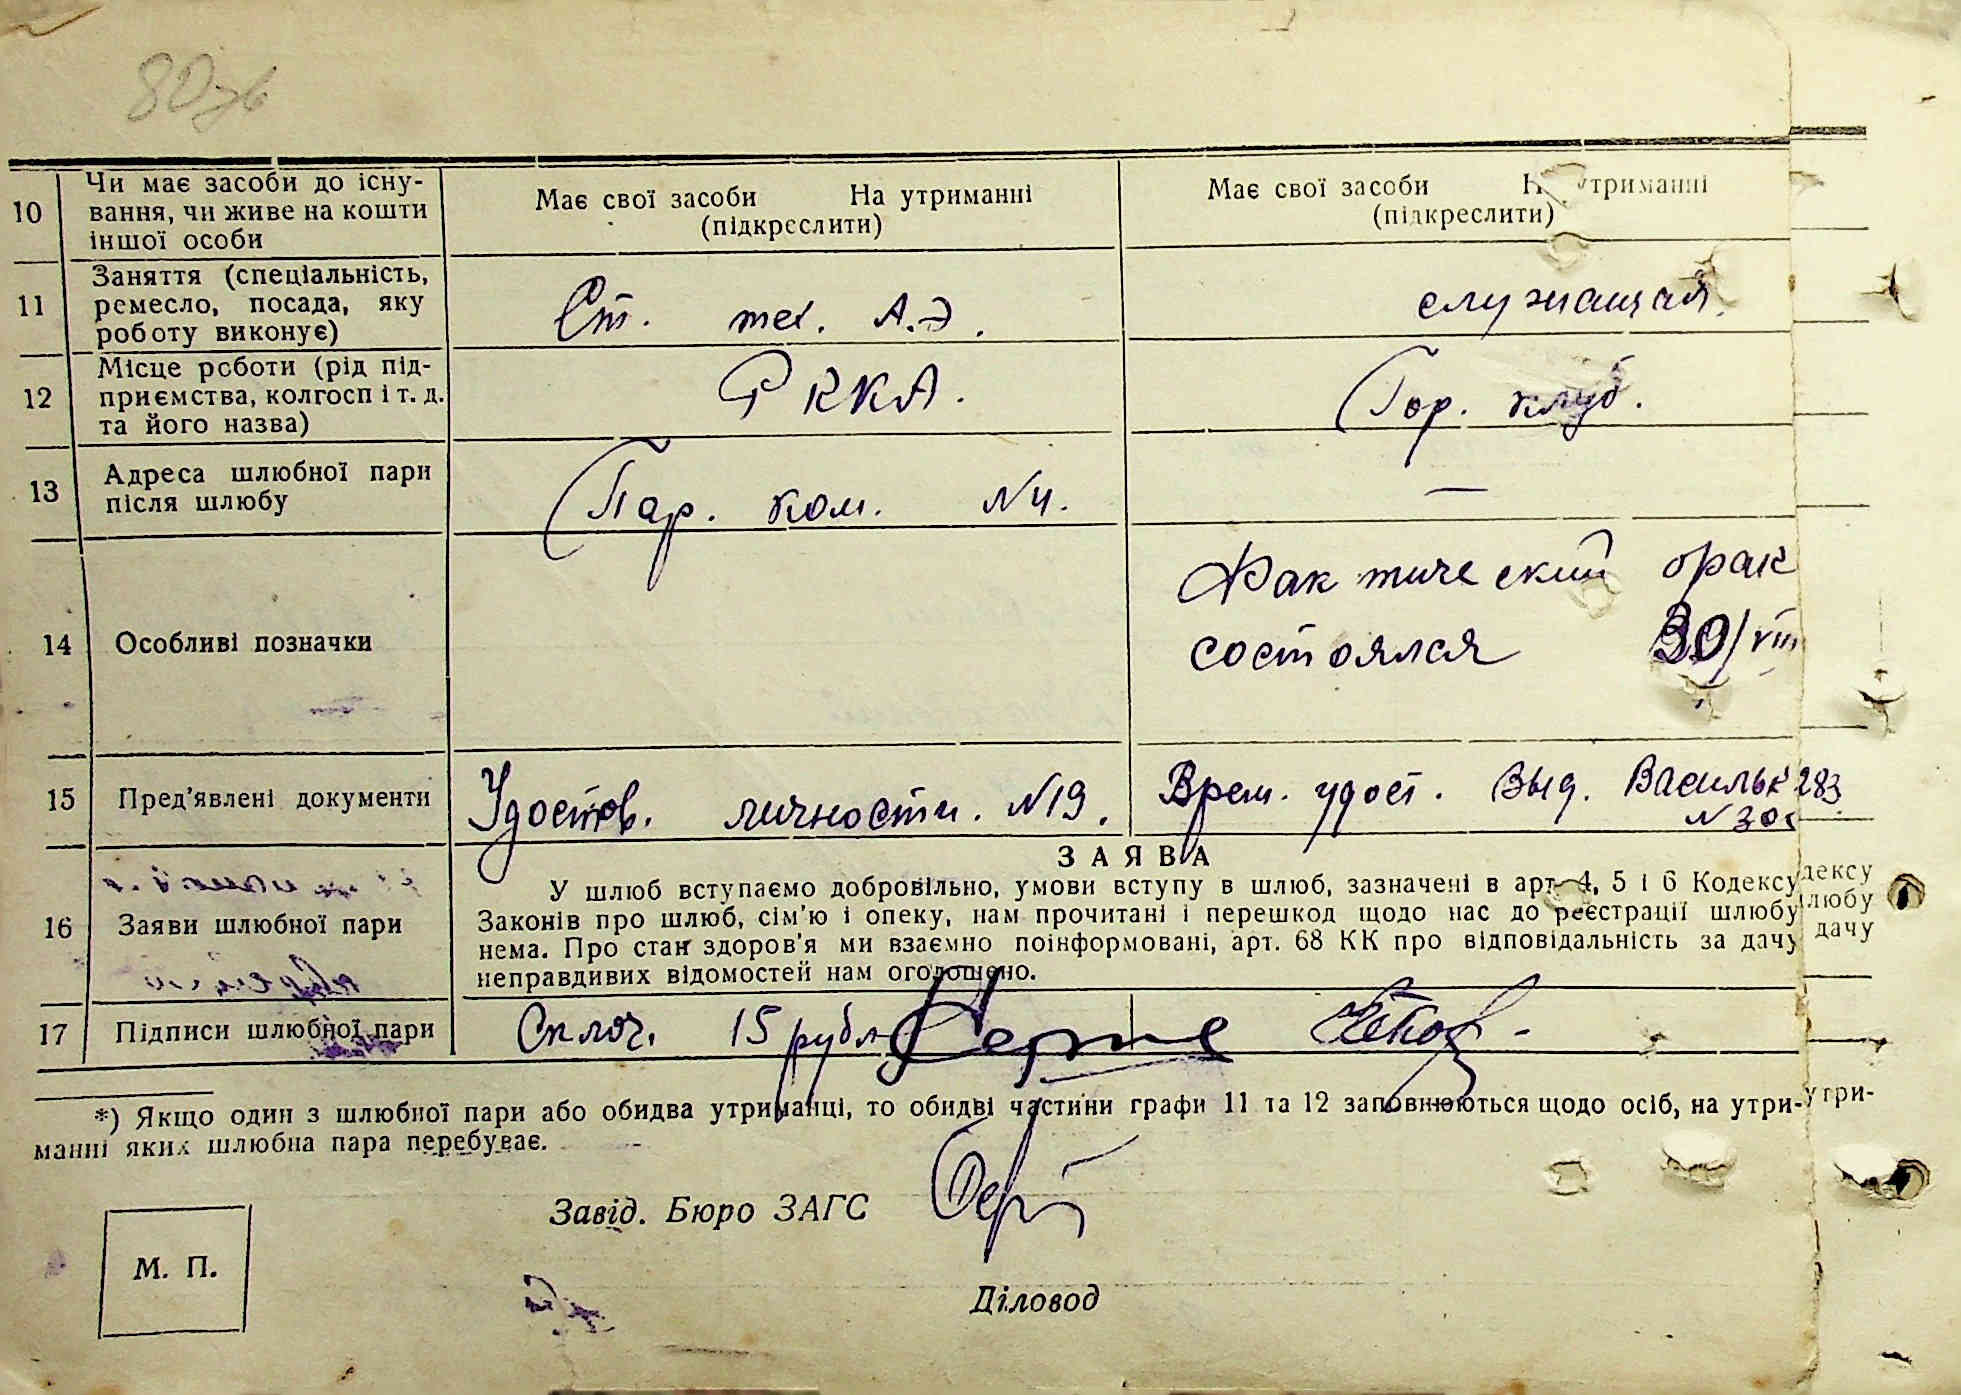 10 Чи має засоби до існу-
вання, чи живе на кошти
іншої особи
Має свої засоби На утриманні
(підкреслити)
Має свої засоби На утриманні
(підкреслити)
11 Заняття (спеціальність,
ремесло, посада, яку
роботу виконує)
Ст. тех. А.Э.
служащая.
12 Місце роботи (рід під-
приємства, колгосп і т. д.
та його назва)
РККА.
Гор. клуб.
13 Адреса шлюбної пари
після шлюбу
Пар. ком. N4.
—
14 Особливі позначки
Фактический брак
состоялся 30/VIII
15 Пред'явлені документи
Удостов. личности. N19.
Врем. удост. выд. Васильк 283
16 Заяви шлюбної пари
ЗАЯВА
У шлюб вступаємо добровільно, умови вступу в шлюб, зазначені в арт. 4, 5 і 6 Кодексу
Законів про шлюб, сім'ю і опеку, нам прочитані і перешкод щодо нас до реєстрації шлюбу
нема. Про стан здоров'я ми взаємно поінформовані, арт. 68 КК про відповідальність за дачу
неправдивих відомостей нам оголошено.
дексу
шлюбу
дачу
17 Підписи шлюбної пари
15 рубл
*) Якщо один з шлюбної пари або обидва утриманці, то обидві частини графи 11 та 12 заповнюються щодо осіб, на утри-
манні яких шлюбна пара перебуває.
утри-
Завід. Бюро ЗАГС
М. П.
Діловод